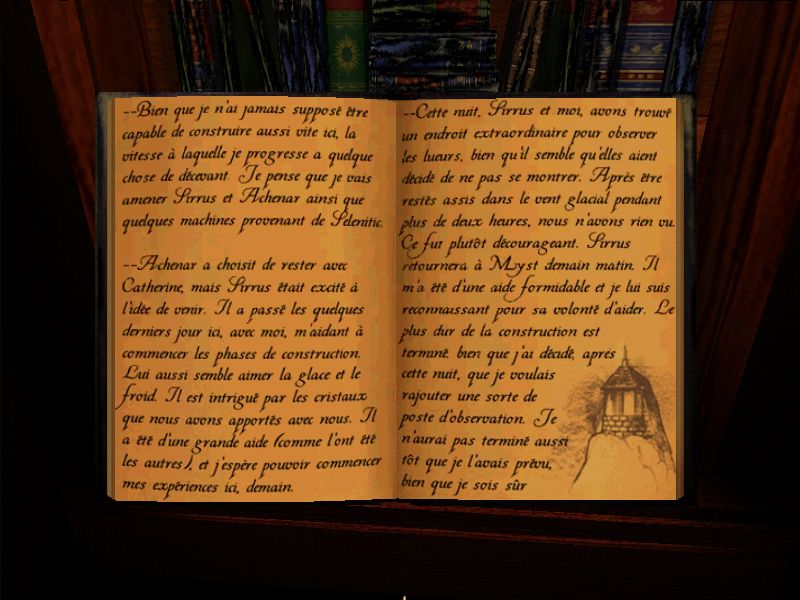 --Bien que je n'ai jamais supposé être
capable de construire aussi vite ici, la
vitesse à laquelle je progresse a quelque
chose de décevant. Je pense que je vais
amener Sirrus et Achenar ainsi que
quelques machines provenant de Sélénitic.
--Achenar a choisit de rester avec
Catherine, mais Sirrus était excité à
l'idée de venir. Il a passé les quelques
derniers jour ici, avec moi, m'aidant à
commencer les phases de construction.
Lui aussi semble aimer la glace et le
froid. Il est intrigué par les cristaux
que nous avons apportés avec nous. Il
a été d'une grande aide (comme l'ont été
les autres), et j'espère pouvoir commencer
mes expériences ici, demain.
--Cette nuit, Sirrus et moi, avons trouvé
un endroit extraordinaire pour observer
les lueurs, bien qu'il semble qu'elles aient
décidé de ne pas se montrer. Après être
restés assis dans le vent glacial pendant
plus de deux heures, nous n'avons rien vu.
Ce fut plutôt décourageant. Sirrus
retournera à Myst demain matin. Il
m'a été d'une aide formidable et je lui suis
reconnaissant pour sa volonté d'aider. Le
plus dur de la construction est
terminé, bien que j'ai décidé, après
cette nuit, que je voulais
rajouter une sorte de
poste d'observation. Je
n'aurai pas terminé aussi
tôt que je l'avais prévu,
bien que je sois sûr